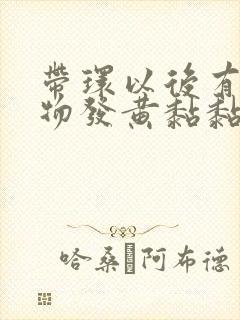 帶環以後有
物發黃黏黏
哈桑·阿布德